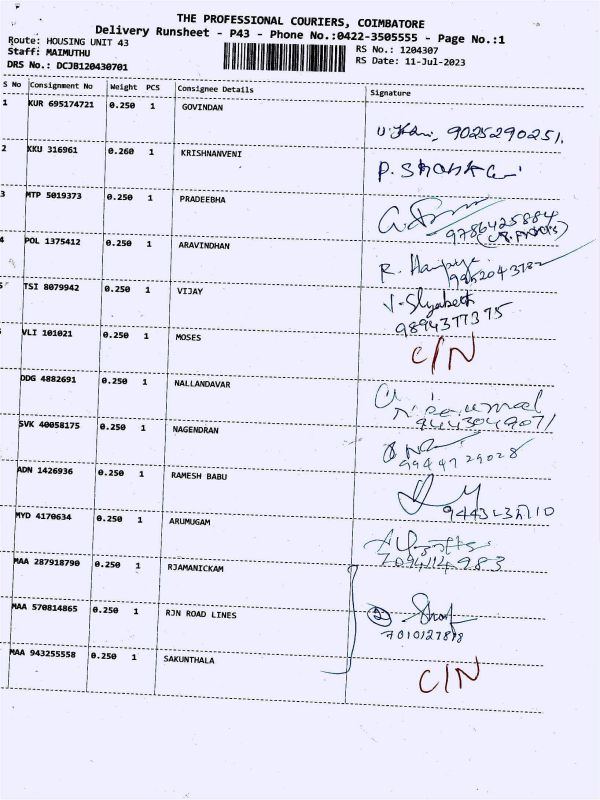 THE PROFESSIONAL COURIERS, COIMBATORE
Delivery Runsheet - P43 - Phone No.:0422-3505555 - Page No.:1
Route: HOUSING UNIT 43
RS No.: 1204307
Staff: MAIMUTHU
RS Date: 11-Jul-2023
DRS No.: DCJB120430701
S No Consignment No Weight PCS Consignee Details Signature
1 KUR 695174721 0.250 1 GOVINDAN
9025290251.
2 KKU 316961 0.260 1 KRISHNANVENI
P.
3 MTP 5019373 0.250 1 PRADEEBHA
9786425884
4 POL 1375412 0.250 1 ARAVINDHAN
R.
5 TSI 8079942 0.250 1 VIJAY
9894377375
VLI 101021 0.250 1 MOSES
C/N
DDG 4882691 0.250 1 NALLANDAVAR
9443049071
SVK 40058175 0.250 1 NAGENDRAN
9944729028
ADN 1426936 0.250 1 RAMESH BABU
MYD 4170634 0.250 1 ARUMUGAM
7094114983
MAA 287918790 0.250 1 RJAMANICKAM
MAA 570814865 0.250 1 RJN ROAD LINES
2
MAA 943255558 0.250 1 SAKUNTHALA
C/N